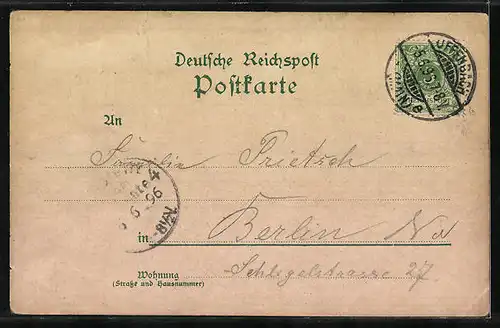 Deutsche Reichspost
Postkarte
An
Familie Prietsch
in Berlin No
Wohnung
(Straße und Hausnummer)
Schlegelstrasse 27
6 96